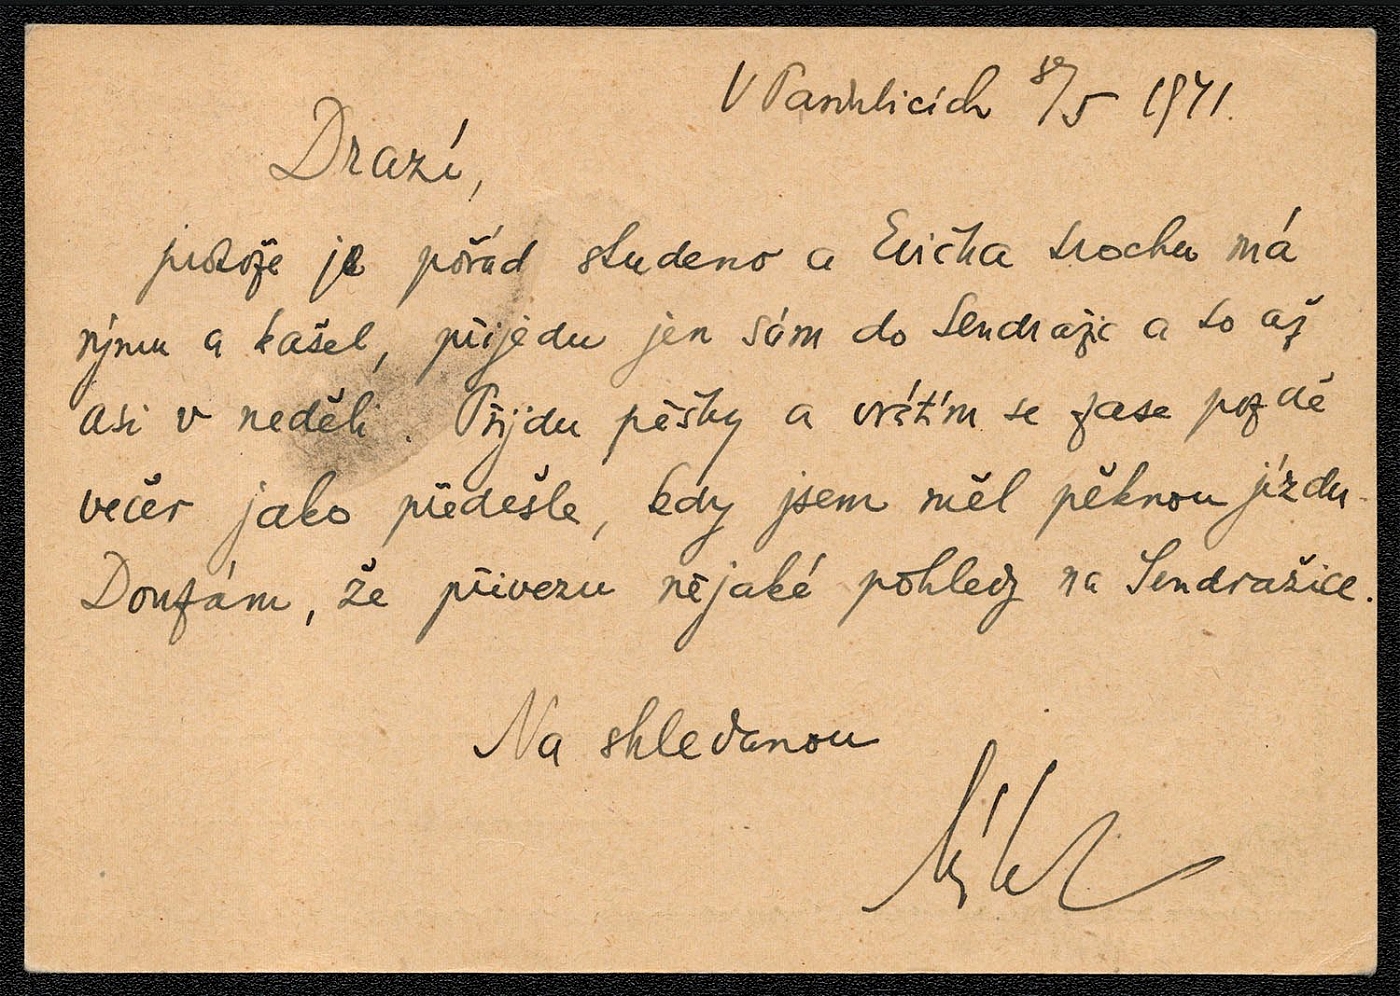 V 8/5 1941.
Drazí,
protože je pořád studeno a Evička trochu má
rýmu a kašel, přijedu jen sám do Sendražic a to až
asi v neděli. Přijdu pěšky a vrátím se zase pozdě
večer jako předešle, kdy jsem měl pěknou jízdu.
Doufám, že přivezu nějaké pohledy na Sendražice.
Na shledanou